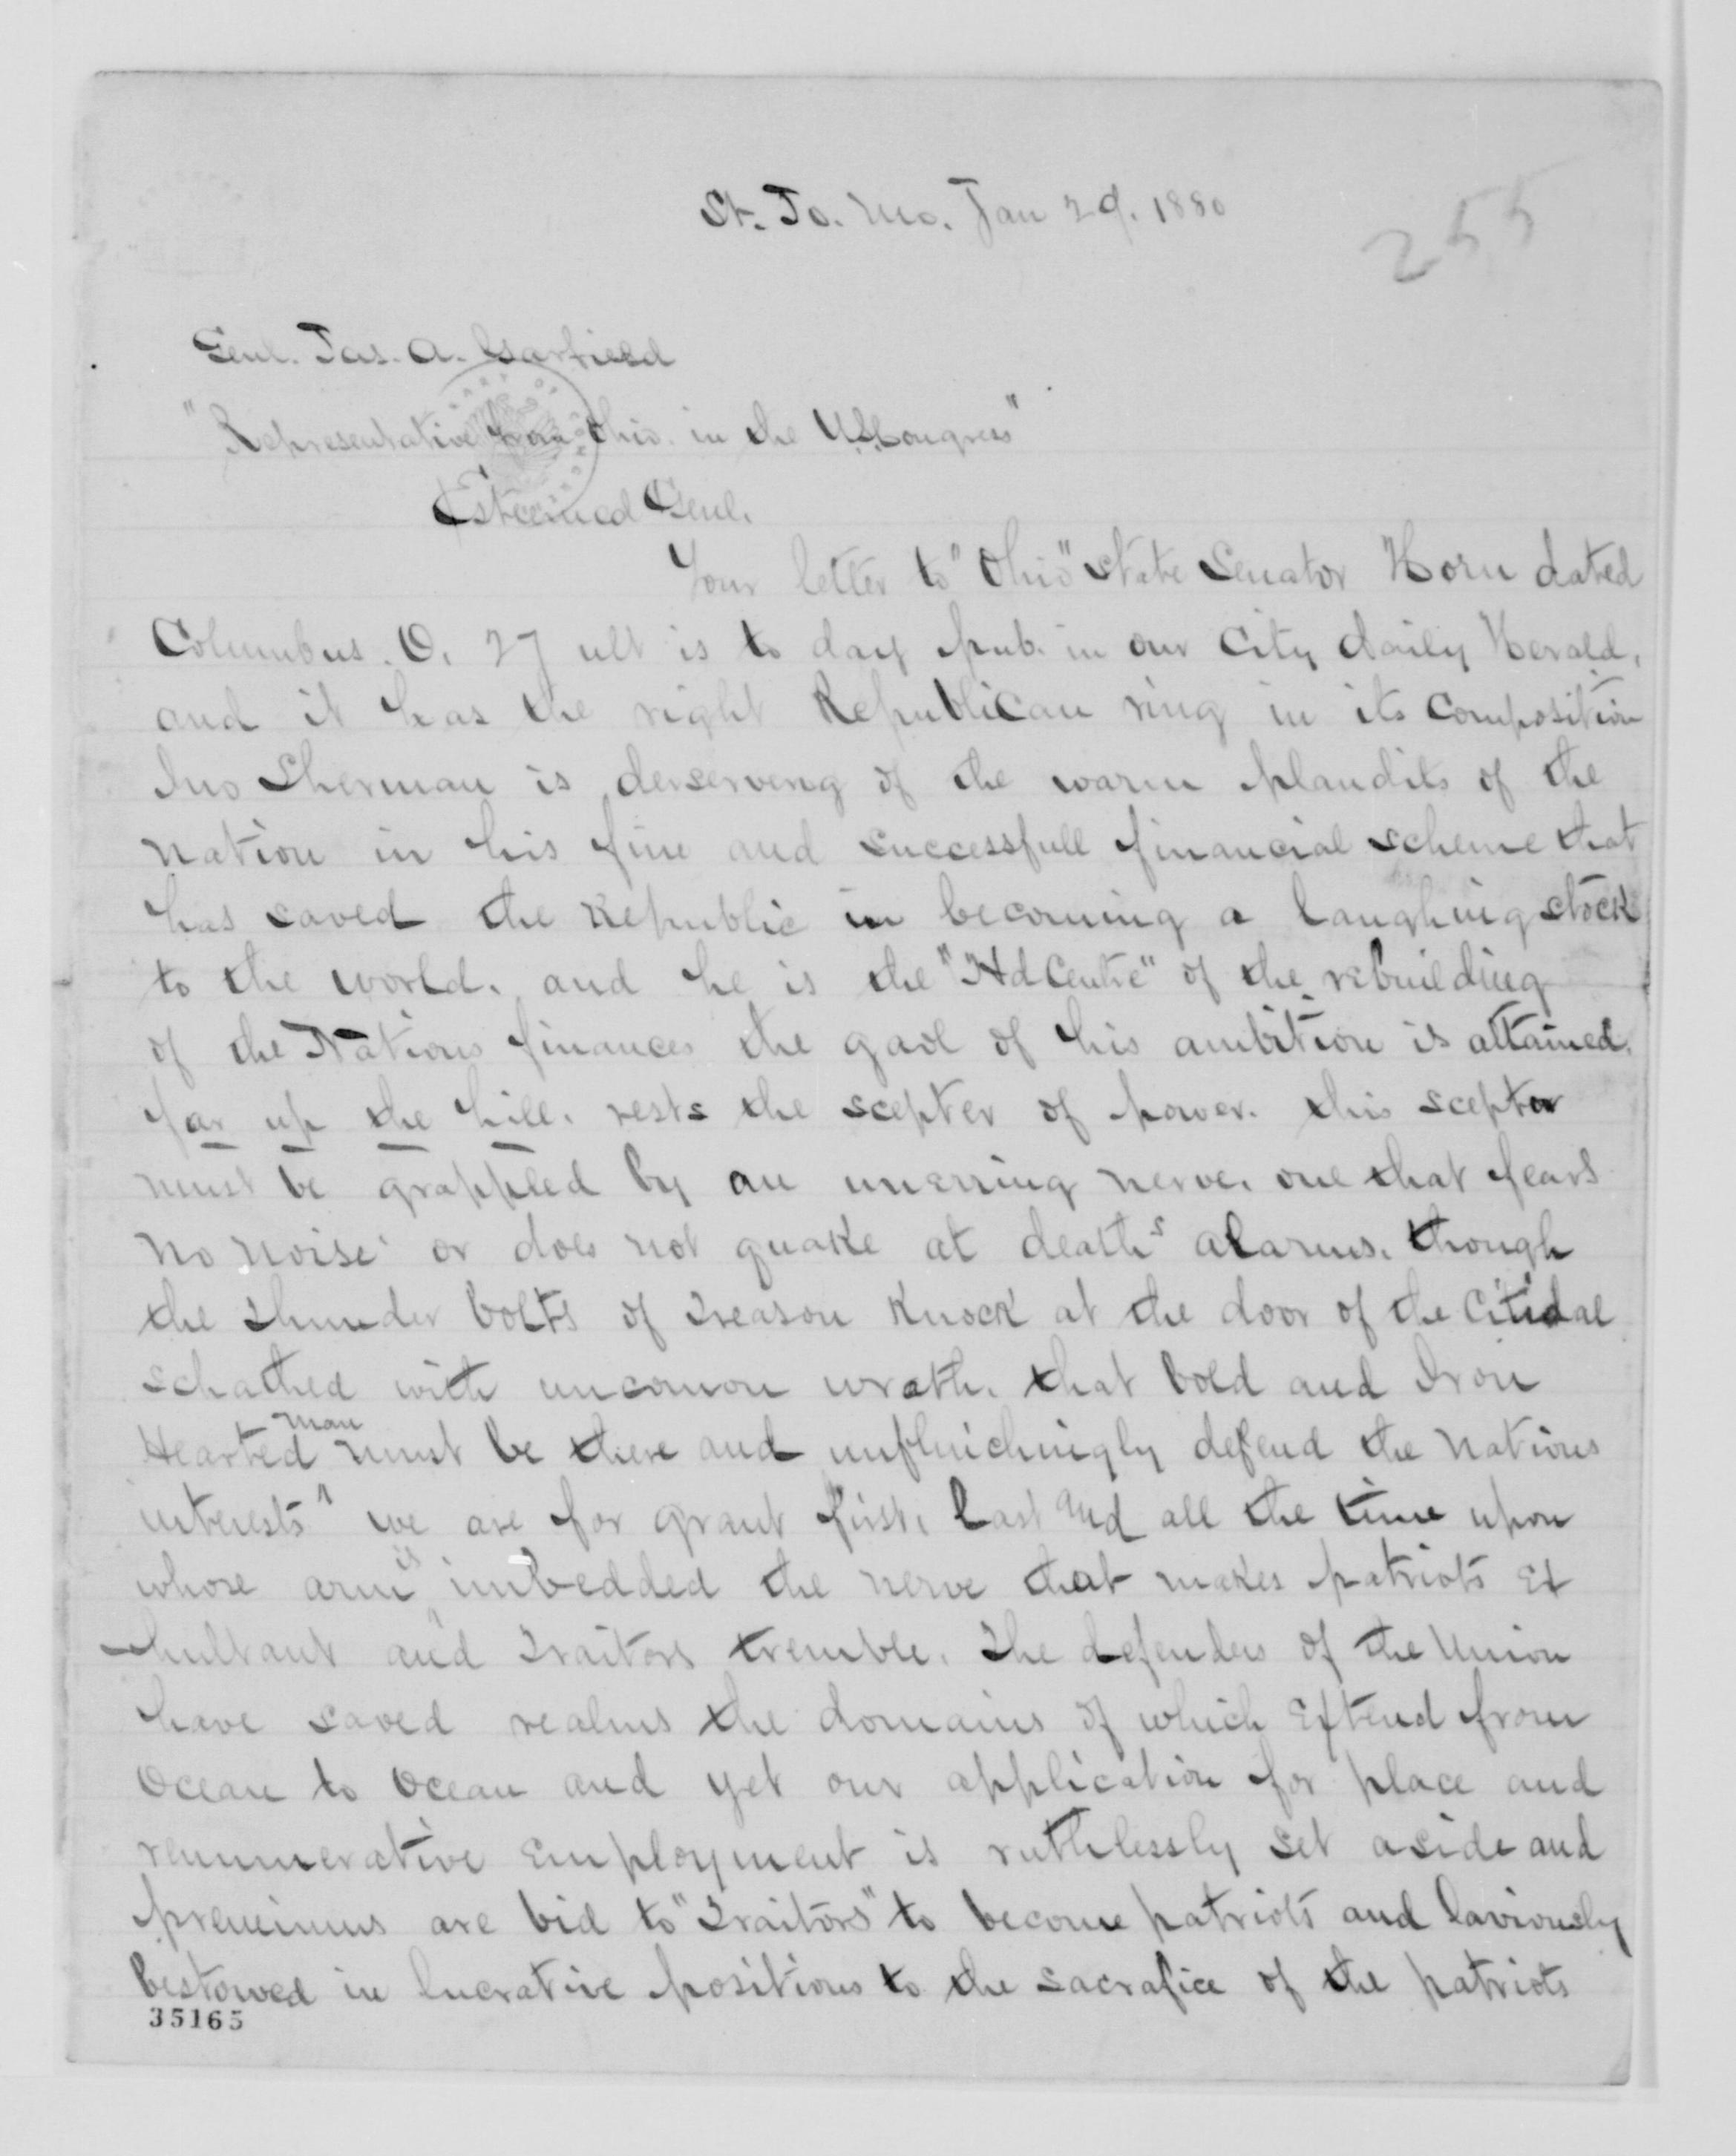 St. Jo. Mo. Jan 29. 1880
255
Genl. Jas. A. Garfield
"Representative from Ohio. in the U.S. Congress"
Esteemed Genl.
Your letter to "Ohio" State Senator Horn dated
Columbus. O. 27 ult is to day pub. in our City daily Herald,
and it has the right Republican ring in its Composition
Jno Sherman is derserving of the warm plaudits of the
Nation in his fine and successfull financial scheme that
has saved the Republic in becoming a laughing stock
to the world. and he is the "Hd Centre" of the rebuilding
of the Nations finances the gaol of his ambition is attained.
far up the hill. rests the scepter of power. this scepter
must be grappled by an unerring nerve. one that fears
no noise or does not quake at deaths alarms. though
the thunder bolts of Treason Knock at the door of the Citidal
schathed with uncomon wrath. that bold and Iron
Hearted man must be there and unflinchingly defend the Nations
interests we are for Grant first, last and all the time upon
whose arm is imbedded the nerve that makes patriots Ex
hultant and Traitors tremble. The defenders of the Union
have saved realms the domains of which Extend from
Ocean to Ocean and yet our application for place and
renumerative Employment is ruthlessly set aside and
premiums are bid to "Traitors" to become patriots and laviously
bestowed in lucrative positions to the sacrafice of the patriots
35165